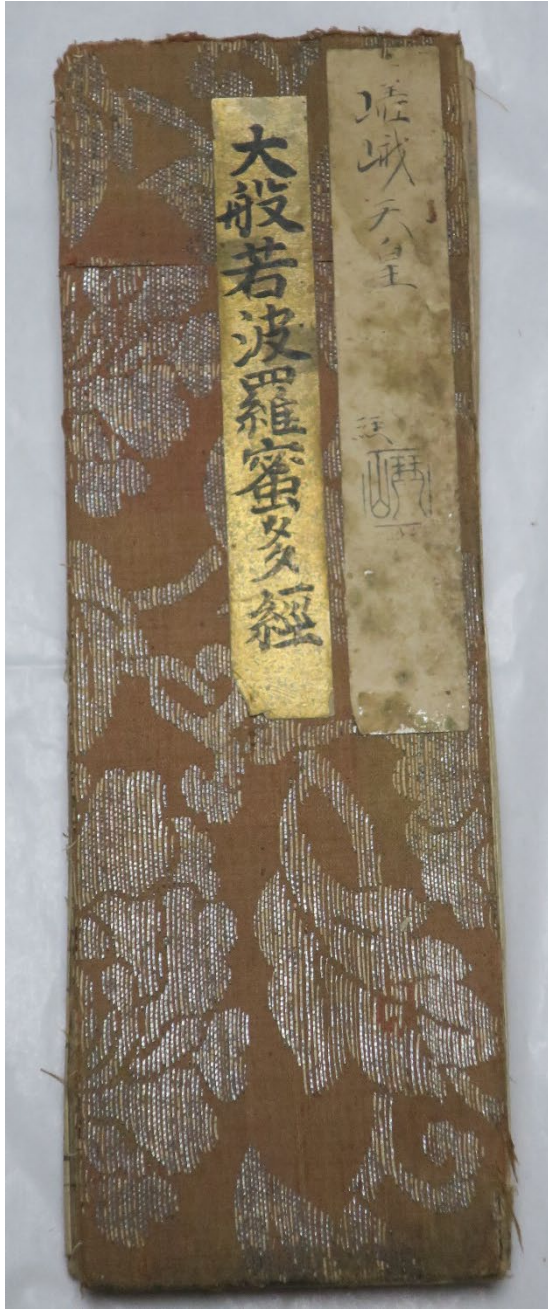 嵯峨天皇
大般若波羅蜜多經